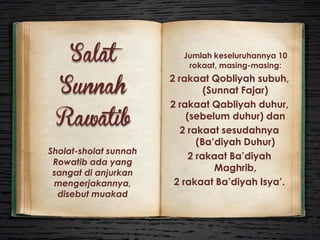 Salat
Sunnah
Rawatib
Sholat-sholat sunnah
Rowatib ada yang
sangat di anjurkan
mengerjakannya,
disebut muakad
Jumlah keseluruhannya 10
rokaat, masing-masing:
2 rakaat Qobliyah subuh,
(Sunnat Fajar)
2 rakaat Qabliyah duhur,
(sebelum duhur) dan
2 rakaat sesudahnya
(Ba’diyah Duhur)
2 rakaat Ba’diyah
Maghrib,
2 rakaat Ba’diyah Isya’.